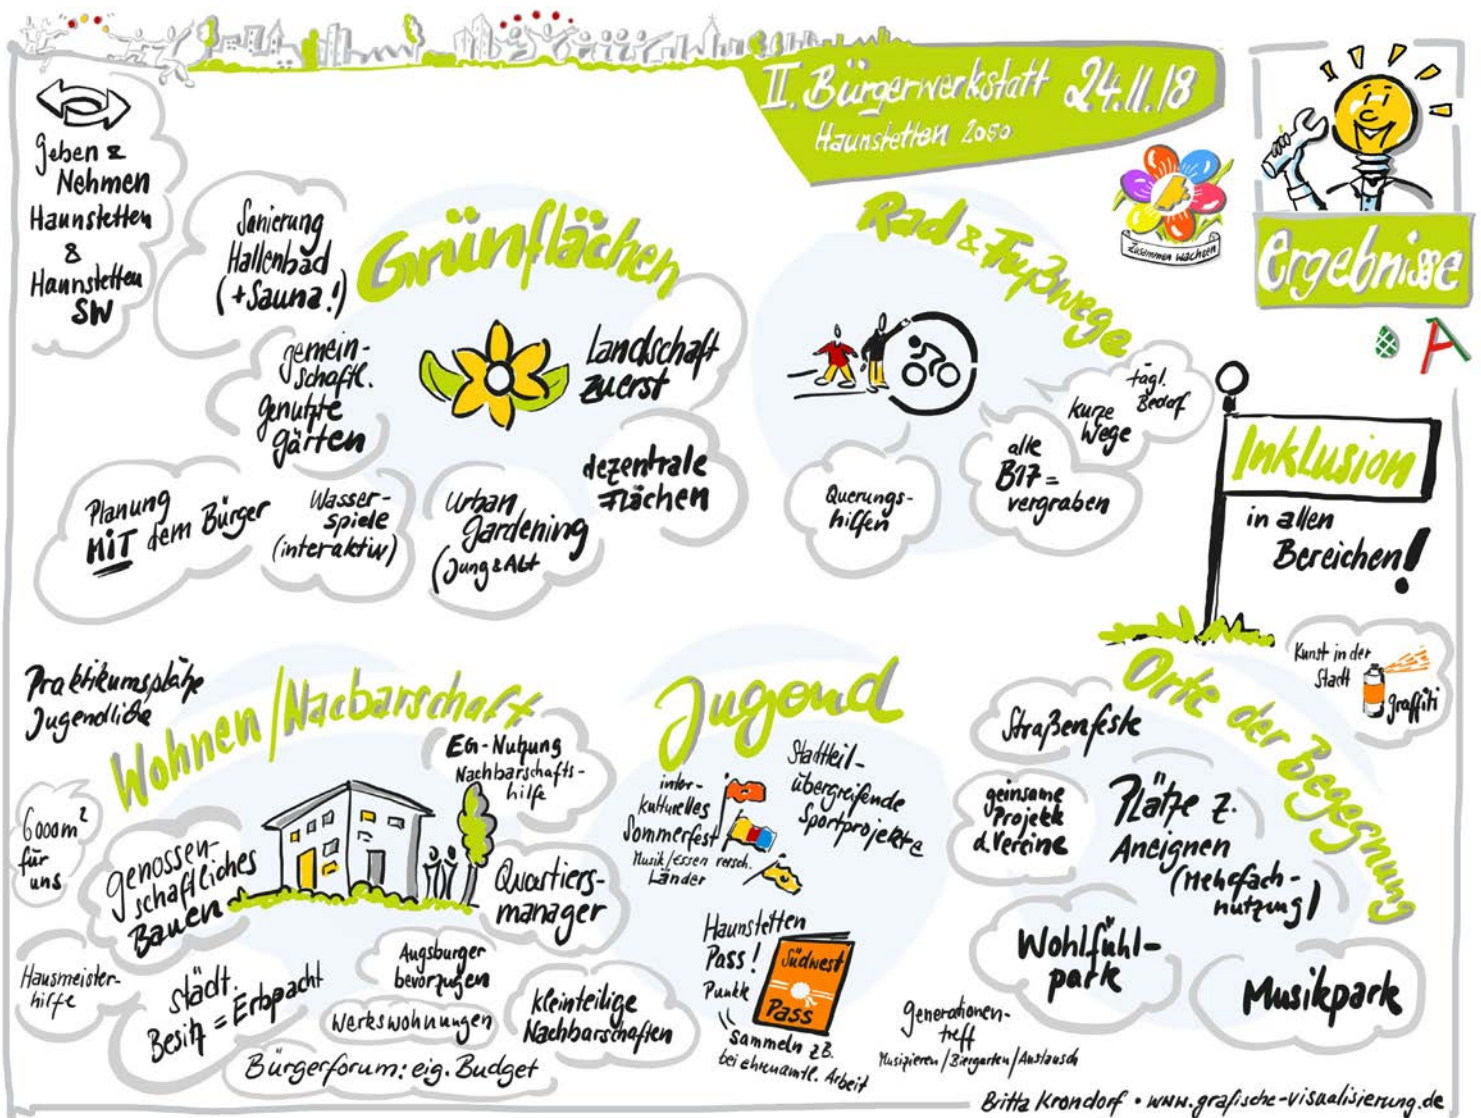 II. Bürgerwerkstatt 24.11.18
Haunstetten 2050
Zusammen wachsen
Ergebnisse
A
Geben &
Nehmen
Haunstetten
&
Haunstetten
SW
Sanierung
Hallenbad
(+Sauna!)
Grünflächen
gemein-
schaftl.
genutzte
gärten
Landschaft
zuerst
dezentrale
Flächen
Planung
MIT dem Bürger
Wasser-
spiele
(interaktiv)
Urban
Gardening
(Jung & Alt
Rad & Fußwege
tägl.
Bedarf
kurze
Wege
alte
B17 =
vergraben
Querungs-
hilfen
Inklusion
in allen
Bereichen!
Praktikumsplätze
Jugendliche
Wohnen/Nacbarschaft
EG-Nutzung
Nachbarschafts-
hilfe
6000m²
für
uns
genossen-
schaftliches
Bauen
Quartiers-
manager
Hausmeister-
hilfe
städt.
Besitz = Erbpacht
Augsburger
bevorzugen
Werkswohnungen
kleinteilige
Nachbarschaften
Bürgerforum: eig. Budget
Jugend
inter-
kulturelles
Sommerfest
Musik/essen versch.
Länder
Stadtteil-
übergreifende
Sportprojekte
Haunstetten
Pass!
Punkte
Südwest
Pass
sammeln z.B.
bei ehrenamtl. Arbeit
Generationen-
treff
Musizieren/Biergarten/Austausch
Orte der Begegnung
Kunst in der
Stadt
graffiti
Straßenfeste
geinsame
Projekte
d. Vereine
Plätze z.
Aneignen
(Mehrfach-
nutzung)
Wohlfühl-
park
Musikpark
Britta Krondorf • www.grafische-visualisierung.de